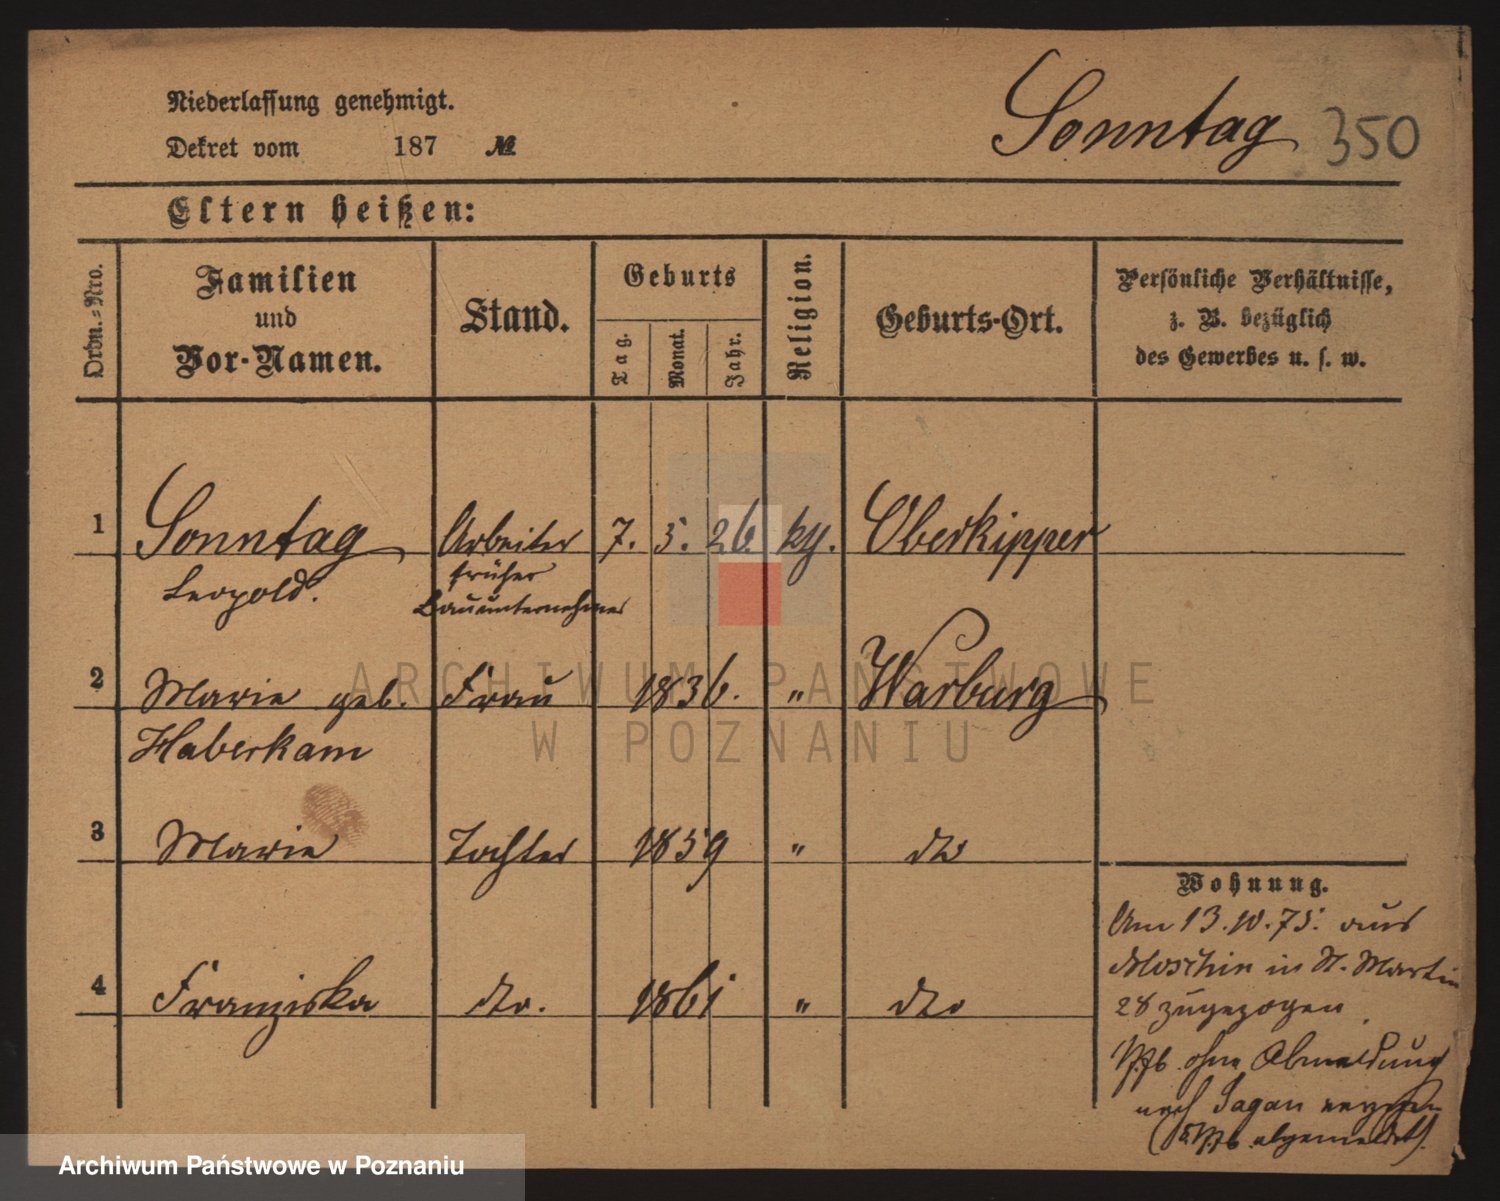 Niederlassung genehmigt.
Dekret vom 187 №
Sonntag 350
Eltern heißen:
Ordn.-Nro.
Familien
und
Vor-Namen.
Stand.
Geburts
Tag.
Monat.
Jahr.
Religion.
Geburts-Ort.
Persönliche Verhältnisse,
z. B. bezüglich
des Gewerbes u. s. w.
1 Sonntag Arbeiter 7. 5. 26. Oberkipper
Leopold. früher
Bauunternehmer
2 Marie geb. Frau 1836. " Warburg
Haberkam
3 Marie Tochter 1859 " dto
4 Franziska dto. 1861 " dto
Wohnung.
Am 13.10.75. aus
Moschin in St. Martin
28 zugezogen
ohne Abmeldung
nach Sagan
abgemeldet).
ARCHIWUM PAŃSTWOWE
W POZNANIU
Archiwum Państwowe w Poznaniu